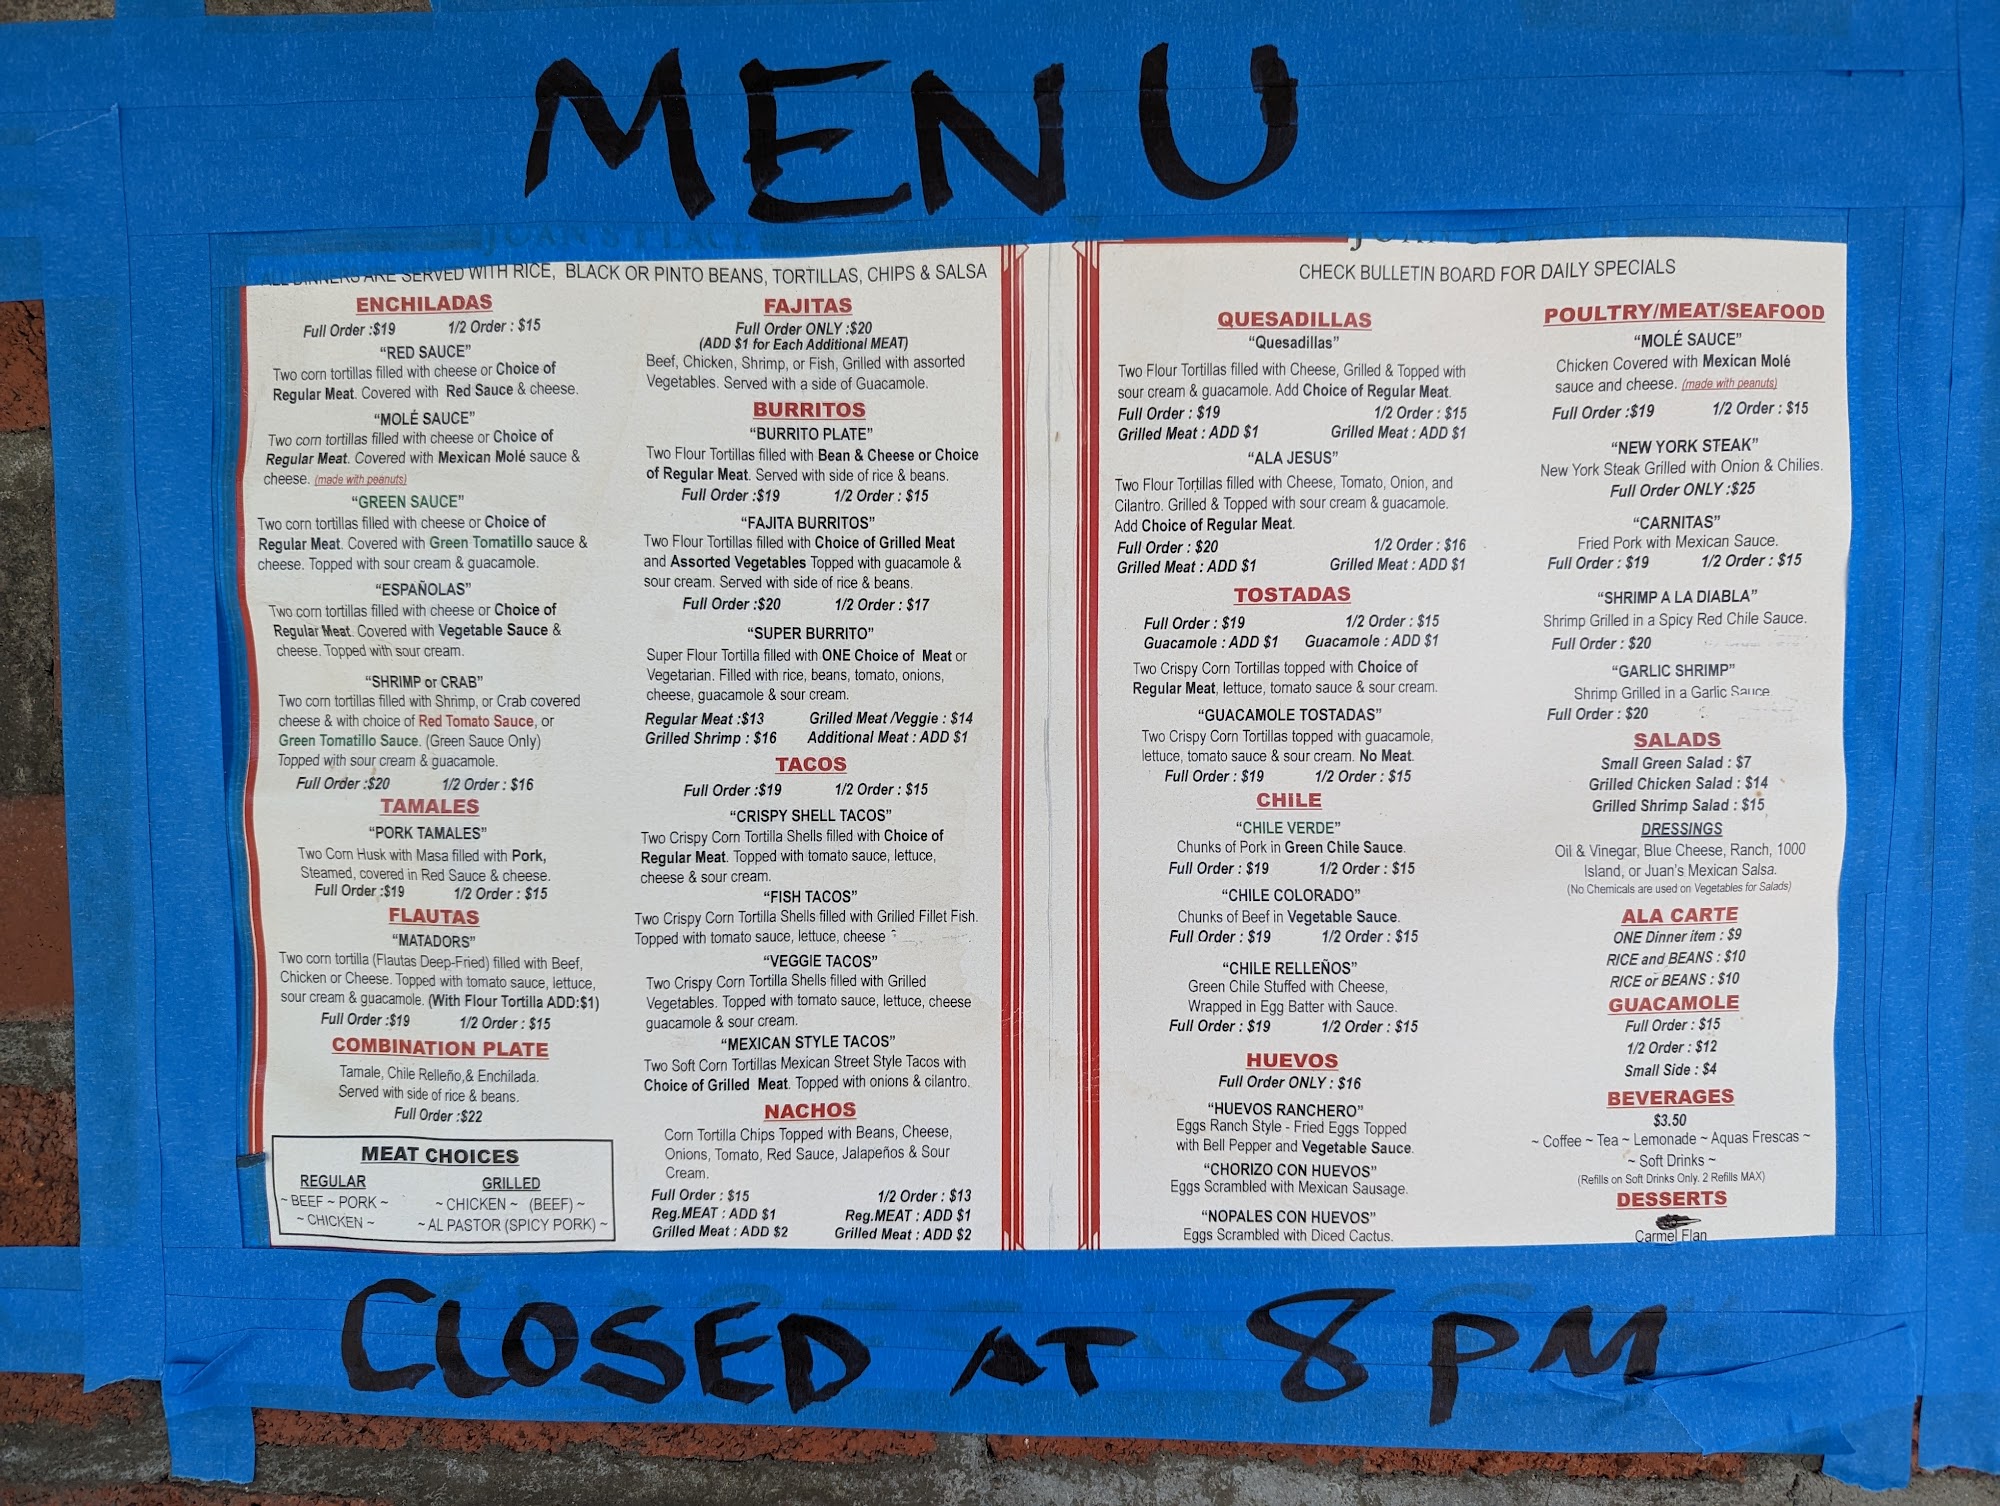 MENU
JUAN'S PLACE
ALL DINNERS ARE SERVED WITH RICE, BLACK OR PINTO BEANS, TORTILLAS, CHIPS & SALSA
ENCHILADAS
Full Order :$19 1/2 Order : $15
“RED SAUCE”
Two corn tortillas filled with cheese or Choice of
Regular Meat. Covered with Red Sauce & cheese.
“MOLÉ SAUCE”
Two corn tortillas filled with cheese or Choice of
Regular Meat. Covered with Mexican Molé sauce &
cheese. (made with peanuts)
“GREEN SAUCE”
Two corn tortillas filled with cheese or Choice of
Regular Meat. Covered with Green Tomatillo sauce &
cheese. Topped with sour cream & guacamole.
“ESPAÑOLAS”
Two corn tortillas filled with cheese or Choice of
Regular Meat. Covered with Vegetable Sauce &
cheese. Topped with sour cream.
“SHRIMP or CRAB”
Two corn tortillas filled with Shrimp, or Crab covered
cheese & with choice of Red Tomato Sauce, or
Green Tomatillo Sauce. (Green Sauce Only)
Topped with sour cream & guacamole.
Full Order :$20 1/2 Order : $16
TAMALES
“PORK TAMALES”
Two Corn Husk with Masa filled with Pork,
Steamed, covered in Red Sauce & cheese.
Full Order :$19 1/2 Order : $15
FLAUTAS
“MATADORS”
Two corn tortilla (Flautas Deep-Fried) filled with Beef,
Chicken or Cheese. Topped with tomato sauce, lettuce,
sour cream & guacamole. (With Flour Tortilla ADD:$1)
Full Order :$19 1/2 Order : $15
COMBINATION PLATE
Tamale, Chile Relleño,& Enchilada.
Served with side of rice & beans.
Full Order :$22
MEAT CHOICES
REGULAR GRILLED
~ BEEF ~ PORK ~ ~ CHICKEN ~ (BEEF) ~
~ CHICKEN ~ ~ AL PASTOR (SPICY PORK) ~
FAJITAS
Full Order ONLY :$20
(ADD $1 for Each Additional MEAT)
Beef, Chicken, Shrimp, or Fish, Grilled with assorted
Vegetables. Served with a side of Guacamole.
BURRITOS
“BURRITO PLATE”
Two Flour Tortillas filled with Bean & Cheese or Choice
of Regular Meat. Served with side of rice & beans.
Full Order :$19 1/2 Order : $15
“FAJITA BURRITOS”
Two Flour Tortillas filled with Choice of Grilled Meat
and Assorted Vegetables Topped with guacamole &
sour cream. Served with side of rice & beans.
Full Order :$20 1/2 Order : $17
“SUPER BURRITO”
Super Flour Tortilla filled with ONE Choice of Meat or
Vegetarian. Filled with rice, beans, tomato, onions,
cheese, guacamole & sour cream.
Regular Meat :$13 Grilled Meat /Veggie : $14
Grilled Shrimp : $16 Additional Meat : ADD $1
TACOS
Full Order :$19 1/2 Order : $15
“CRISPY SHELL TACOS”
Two Crispy Corn Tortilla Shells filled with Choice of
Regular Meat. Topped with tomato sauce, lettuce,
cheese & sour cream.
“FISH TACOS”
Two Crispy Corn Tortilla Shells filled with Grilled Fillet Fish.
Topped with tomato sauce, lettuce, cheese
“VEGGIE TACOS”
Two Crispy Corn Tortilla Shells filled with Grilled
Vegetables. Topped with tomato sauce, lettuce, cheese
guacamole & sour cream.
“MEXICAN STYLE TACOS”
Two Soft Corn Tortillas Mexican Street Style Tacos with
Choice of Grilled Meat. Topped with onions & cilantro.
NACHOS
Corn Tortilla Chips Topped with Beans, Cheese,
Onions, Tomato, Red Sauce, Jalapeños & Sour
Cream.
Full Order : $15 1/2 Order : $13
Reg.MEAT : ADD $1 Reg.MEAT : ADD $1
Grilled Meat : ADD $2 Grilled Meat : ADD $2
JUAN'S PLACE
CHECK BULLETIN BOARD FOR DAILY SPECIALS
QUESADILLAS
“Quesadillas”
Two Flour Tortillas filled with Cheese, Grilled & Topped with
sour cream & guacamole. Add Choice of Regular Meat.
Full Order : $19 1/2 Order : $15
Grilled Meat : ADD $1 Grilled Meat : ADD $1
“ALA JESUS”
Two Flour Tortillas filled with Cheese, Tomato, Onion, and
Cilantro. Grilled & Topped with sour cream & guacamole.
Add Choice of Regular Meat.
Full Order : $20 1/2 Order : $16
Grilled Meat : ADD $1 Grilled Meat : ADD $1
TOSTADAS
Full Order : $19 1/2 Order : $15
Guacamole : ADD $1 Guacamole : ADD $1
Two Crispy Corn Tortillas topped with Choice of
Regular Meat, lettuce, tomato sauce & sour cream.
“GUACAMOLE TOSTADAS”
Two Crispy Corn Tortillas topped with guacamole,
lettuce, tomato sauce & sour cream. No Meat.
Full Order : $19 1/2 Order : $15
CHILE
“CHILE VERDE”
Chunks of Pork in Green Chile Sauce.
Full Order : $19 1/2 Order : $15
“CHILE COLORADO”
Chunks of Beef in Vegetable Sauce.
Full Order : $19 1/2 Order : $15
“CHILE RELLEÑOS”
Green Chile Stuffed with Cheese,
Wrapped in Egg Batter with Sauce.
Full Order : $19 1/2 Order : $15
HUEVOS
Full Order ONLY : $16
“HUEVOS RANCHERO”
Eggs Ranch Style - Fried Eggs Topped
with Bell Pepper and Vegetable Sauce.
“CHORIZO CON HUEVOS”
Eggs Scrambled with Mexican Sausage.
“NOPALES CON HUEVOS”
Eggs Scrambled with Diced Cactus.
POULTRY/MEAT/SEAFOOD
“MOLÉ SAUCE”
Chicken Covered with Mexican Molé
sauce and cheese. (made with peanuts)
Full Order :$19 1/2 Order : $15
“NEW YORK STEAK”
New York Steak Grilled with Onion & Chilies.
Full Order ONLY :$25
“CARNITAS”
Fried Pork with Mexican Sauce.
Full Order : $19 1/2 Order : $15
“SHRIMP A LA DIABLA”
Shrimp Grilled in a Spicy Red Chile Sauce.
Full Order : $20
“GARLIC SHRIMP”
Shrimp Grilled in a Garlic Sauce
Full Order : $20
SALADS
Small Green Salad : $7
Grilled Chicken Salad : $14
Grilled Shrimp Salad : $15
DRESSINGS
Oil & Vinegar, Blue Cheese, Ranch, 1000
Island, or Juan's Mexican Salsa.
(No Chemicals are used on Vegetables for Salads)
ALA CARTE
ONE Dinner item : $9
RICE and BEANS : $10
RICE or BEANS : $10
GUACAMOLE
Full Order : $15
1/2 Order : $12
Small Side : $4
BEVERAGES
$3.50
~ Coffee ~ Tea ~ Lemonade ~ Aquas Frescas ~
~ Soft Drinks ~
(Refills on Soft Drinks Only. 2 Refills MAX)
DESSERTS
Carmel Flan
CLOSED AT 8 PM